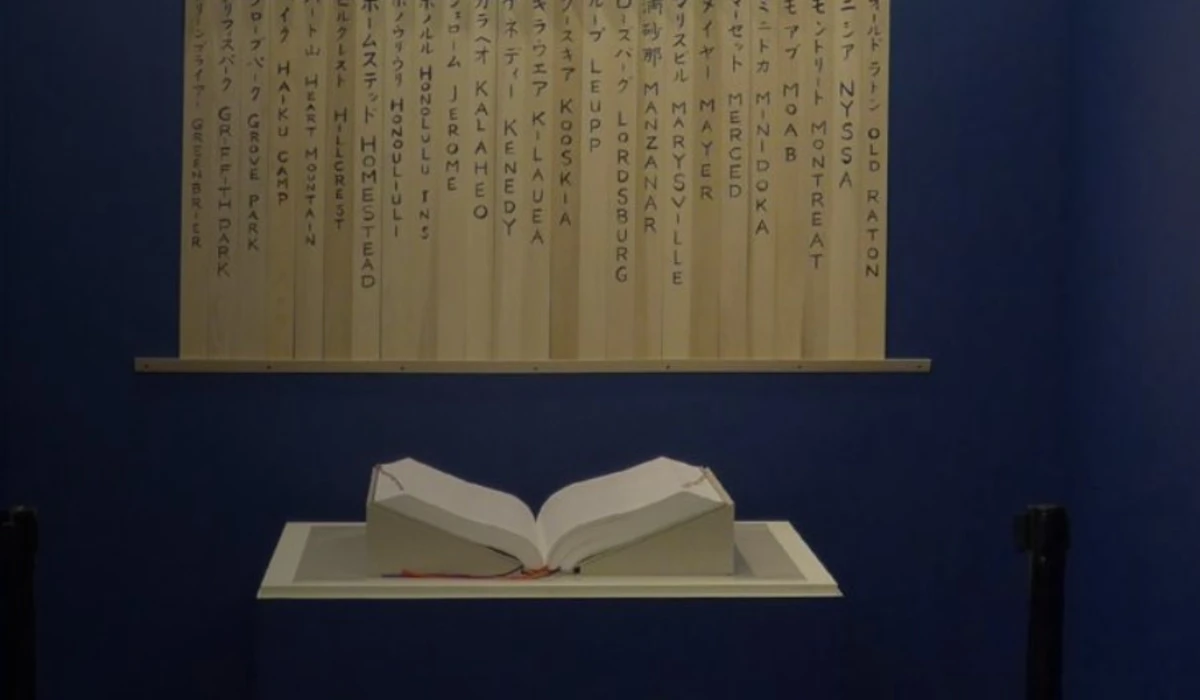 リーンブライアー GREENBRIER
リフィスパーク GRIFFITH PARK
ローブパーク GROVE PARK
イク HAIKU CAMP
ート山 HEART MOUNTAIN
ヒルクレスト HILLCREST
ホームステッド HOMESTEAD
ホノウリウリ HONOULIULI
ホノルル HONOLULU INS
ジェローム JEROME
カラヘオ KALAHEO
ケネディー KENEDY
キラウエア KILAUEA
クースキア KOOSKIA
ループ LEUPP
ローズバーグ LORDSBURG
満砂那 MANZANAR
マリスビル MARYSVILLE
メイヤー MAYER
マーセット MERCED
ミニドカ MINIDOKA
モアブ MOAB
モントリート MONTREAT
ニシア NYSSA
オールド ラトン OLD RATON